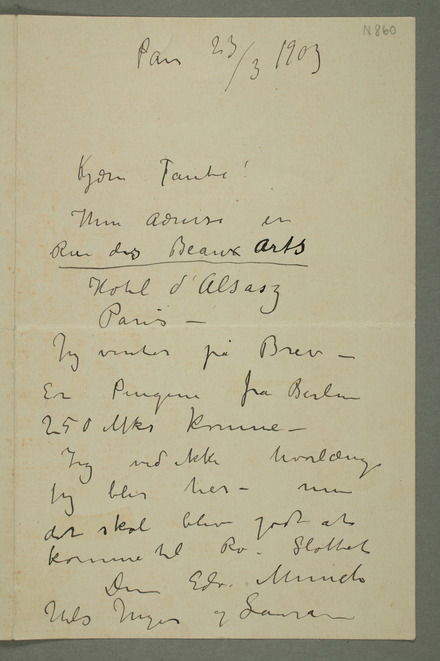 N. 860
Paris 23/3 1903
Kjære Tante!
Min Adresse er
Rue des Beaux Arts
Hotel d'Alsasz
Paris –
Jeg venter på Brev –
Er Pengene fra Berlin
250 Mks komne –
Jeg ved ikke hvorlænge
jeg blir her – men
det skal bliv godt at
komme til Ro. Slottet
Din Edv. Munch
Hils Inger og Laura